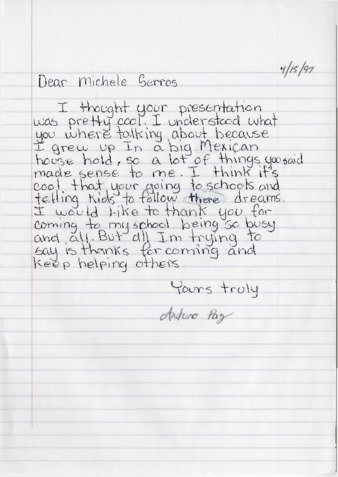 4/15/97
Dear Michele Serros
I thought your presentation
was pretty cool. I understood what
you where talking about because
I grew up In a big Mexican
house hold, so a lot of things you said
made sense to me. I think it's
cool, that your going to schools and
telling kids to follow there dreams.
I would like to thank you for
coming to my school being so busy
and all. But all Im trying to
say is thanks for coming and
keep helping others.
Yours truly
Arturo Paz